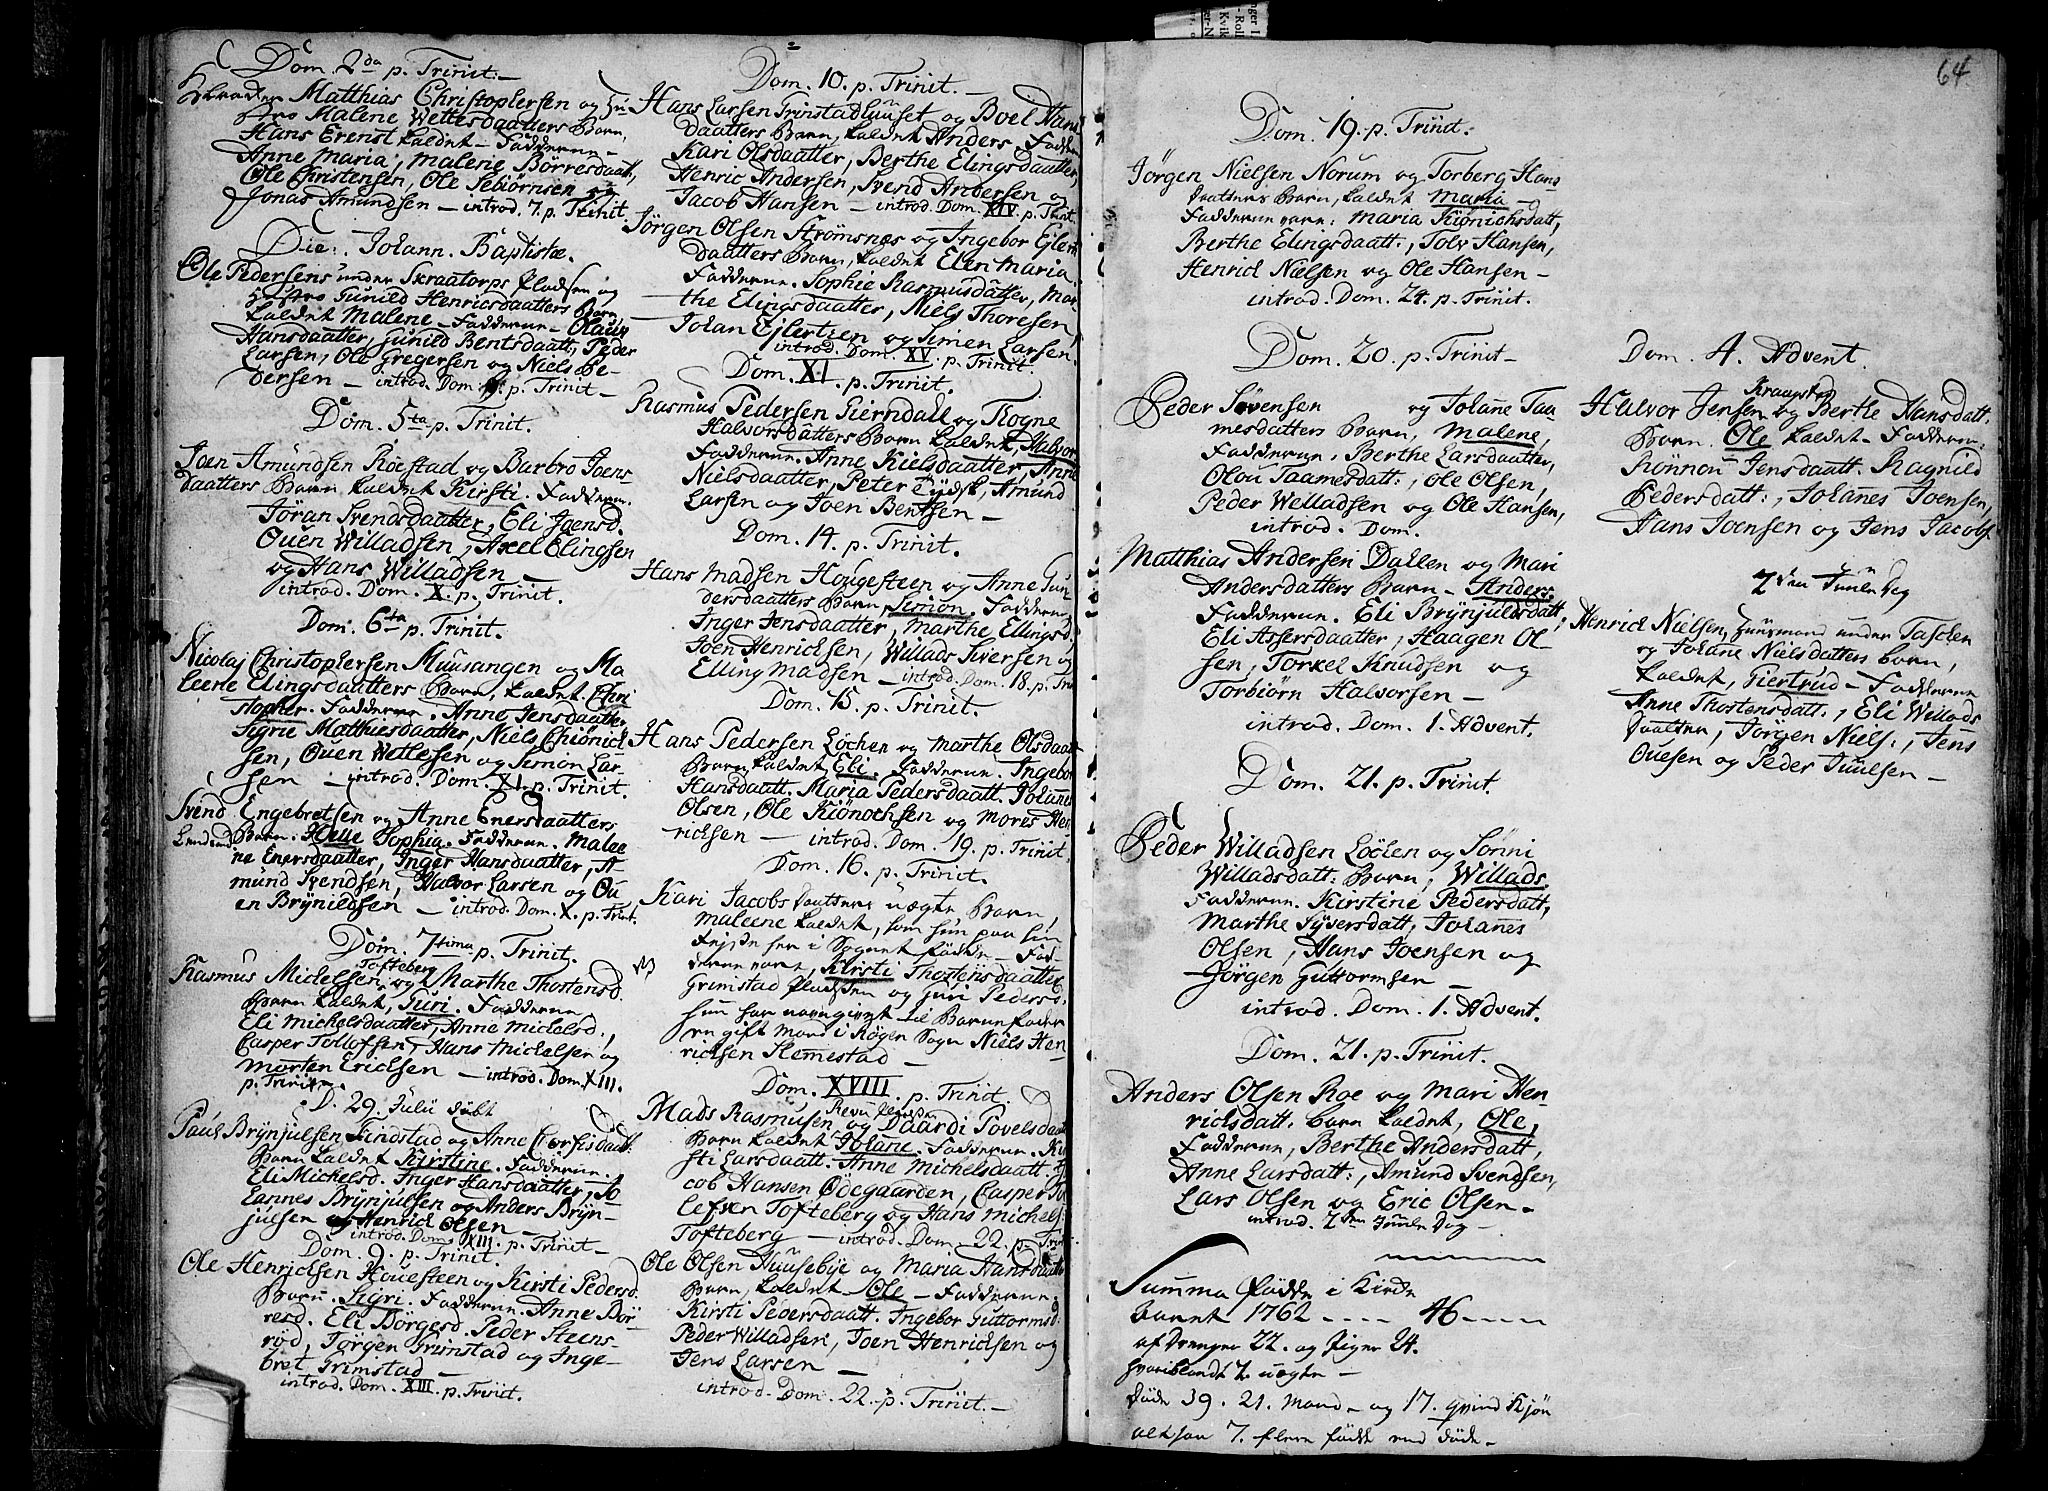 Dom. 2da p. Trinit:
Matthias Christophersen og Hu-
stro Malene Wettesdaatters Barn,
Hans Erenst kaldet - Fadderne -
Anne Maria, Malene Börresdaatt,
Ole Christensen, Ole Sebiörnsen og
Jonas Amundsen - introd. 7. p. Trinit.
Die: Johann. Baptistæ.
Ole Pedersens under Skraatorps Pladsen og
Hustro Gunild Henricsdaatters Barn,
kaldet Malene - Fadderne - Olaug
Hansdaatter, Gunild Bentsdaatt, Peder
Larsen, Ole Gregersen og Niels Pe-
dersen - introd. Dom. p. Trinit -
Dom. 5ta p. Trinit.
Joen Amundsen Röestad og Barbro Joens-
daatters Barn, kaldet Kirsti. Fadderne.
Jöran Svendsdaatter, Eli Joensd.
Ouen Willadsen, Axel Elingsen
og Hans Willadsen -
introd. Dom. X. p. Trinit.
Dom. 6ta p. Trinit.
Nicolaj Christophersen Muusangen og Ma-
leene Elingsdaatters Barn, kaldet Chri-
stopher. Fadderne. Anne Jensdaatter
Sigrie Matthiesdaatter, Niels Chiönick-
sen, Ouen Wetlesen og Simon Lar-
sen - introd. Dom. XI. p. Trinit.
Svend Engebretsen og Anne Enersdaatters
Barn. Helle Sophia. Fadderne. Malee-
ne Enersdaatter, Inger Hansdaatter, A-
mund Svendsen, Halvor Larsen og Ou-
en Brÿnildsen - introd. Dom. X. p. Trint.
Dom. 7tima p. Trinit.
Tofteberg
Rasmus Michelsen og Marthe Thostensd.
Barn kaldet, Guri. Fadderne
Eli Michelsdaatter, Anne Michelsd.,
Casper Tollofsen, Hans Mickelsen og
Morten Ericksen - introd. Dom. XIII.
p. Trinit
D. 29. Julii döbt
Paul Brÿnjulsen Findstad og Anne
Barn kaldet Kirstine. Fadderne.
Eli Michelsd. Inger Hansdaatter, Jo-
hannes Brÿnjulsen og Anders Brÿn-
julsen og Henrick Olsen -
introd. Dom. XIII. p. Trinit -
Dom. 9. p. Trinit.
Ole Henricksen Houesteen og Kirsti Pedersd.
Barn. Sigri. Fadderne. Anne Bör-
resd. Eli Börgesd. Peder Steens-
rud, Jörgen Grimstad og Inge-
bret Grimstad -
introd. Dom. XIII. p. Trinit.
Dom. 10. p. Trinit.
Hans Larsen Grinstadhuuset og Boel Hans-
daatters Barn, kaldet Anders. Fadderne
Kari Olsdaatter, Berthe Elingsdaatter,
Henric Andersen, Svend Andersen og
Jacob Hansen - introd. Dom. XIV. p. Trinit
Jörgen Olsen Strömsnæs og Ingebor Ejlerts-
daatters Barn, kaldet Elen Maria
Fadderne. Sophie Rasmusdatter, Mar-
the Elingsdaatter, Niels Thoresen,
Johan Ejlertsen og Simen Larsen.
introd. Dom. XV. p. Trinit.
Dom. XI. p. Trinit.
Rasmus Pedersen Gierndall og Rogne
Halvorsdatters Barn kaldet, Halvor
Fadderne. Anne Kielsdaatter, Anne
Nielsdaatter, Peter Tÿdsk, Amund
Larsen og Joen Bentsen -
Dom. 14. p. Trinit.
Hans Madsen Hougesteen og Anne Gun-
dersdaatters Barn, Simon. Fadderne
Inger Jensdaatter, Marthe Ellingsd.
Joen Henricksen, Willads Siversen og
Elling Madsen - introd. Dom. 18. p. Trin
Dom. 15. p. Trinit.
Hans Pedersen Löchen og Marthe Olsdaatt
Barn kaldet Eli. Fadderne. Ingebor
Hansdaatt. Maria Pedersdaatt. Johannes
Olsen, Ole Kiönochsen og Mores Hen-
ricksen - introd. Dom. 19. p. Trinit.
Dom. 16. p. Trinit.
Kari Jacobsdaatters uægte Barn,
Maleene kaldet, som hun paa sin
Rejse her i Sognet födde - Fad-
derne vare, Kirsti Thostensdaatter
Grimstad pladsen og Juri Pedersd.
hun har navngivet til Barnefader
en gift Mand i Rögen Sogn Niels Hen-
ricksen Slemestad -
Dom. XVIII. p. Trinit.
Revu pladsen
Mads Rasmusen og Daardi Povelsdaatt
Barn kaldet Johane. Fadderne. Kir-
sti Larsdaatt. Anne Michelsdaatt. Ja-
cob Hansen Ödegaarden, Casper To-
lefsen Tofteberg og Hans Michels:
Tofteberg - introd. Dom. 22. p. Trinit.
Ole Olsen Huusebÿe og Maria Hansdaatt
Barn, kaldet Ole - Fadderne.
Kirsti Pedersdaatt. Ingebor Guttormsd
Peder Willadsen, Joen Henricksen og
Jens Larsen -
introd. Dom. 22. p. Trinit. -
64
Dom. 19. p. Trinit.
Jörgen Nielsen Norum og Torberg Hans
daatters Barn, kaldet Maria -
Fadderne vare: Maria Kiönichsdatt,
Berthe Elingsdaatt., Tolv Hansen,
Henrick Nielsen og Ole Hansen -
introd. Dom. 24. p. Trinit.
Dom. 20. p. Trinit -
Peder Sörensen og Johane Taa-
mesdatters Barn, Malene,
Fadderne. Berthe Larsdaatter,
Olou Taamesdatt:, Ole Olsen,
Peder Welladsen og Ole Hansen,
introd. Dom.
Matthias Andersen Dallen og Mari
Andersdatters Barn - Anders.
Fadderne. Eli Brÿnjulsdatt,
Eli Assersdaatter, Haagen Ol-
sen, Torkel Knudsen og
Torbiörn Halvorsen -
introd. Dom. 1. Advent.
Dom. 21. p. Trinit.
Peder Willadsen Löcken og Sönni
Willadsdatt: Barn, Willads.
Fadderne. Kirstine Pedersdatt,
Marthe Sÿversdatt, Johanes
Olsen, Hans Joensen og
Jörgen Guttormsen -
introd. Dom. 1. Advent.
Dom. 21. p. Trinit.
Anders Olsen Roe og Mari Hen-
ricksdatt. barn kaldet, Ole,
Fadderne, Berthe Andersdatt,
Anne Larsdatt:, Amund Svendsen,
Lars Olsen og Eric Olsen -
introd. 2den Juule Dag -
Summa födde i Kircke
Aaret 1762 - - - - 46 - - - -
af Drenge 22. og Piger 24.
hvoriblandt 2. uægte -
döde 39. 21. Mand - og 17. qvind Kjön
altsaa 7. flere födde end döde -
Dom. 4. Advent.
Kraagstad
Halvor Jensen og Berthe Hansdatt.
Barn. Ole kaldet - Fadderne:
Rönnou Jensdaatt. Ragnild
Pedersdatt:, Johanes Joensen,
Hans Joensen og Jens Jacobs
2den Juule Dag
Henrick Nielsen, Huusmand under Taschen
og Johane Nielsdatters barn,
kaldet, Giertrud - Fadderne
Anne Thostensdatt., Eli Willads
daatter, Jörgen Niels:, Jens
Ouesen og Peder Juulsen -